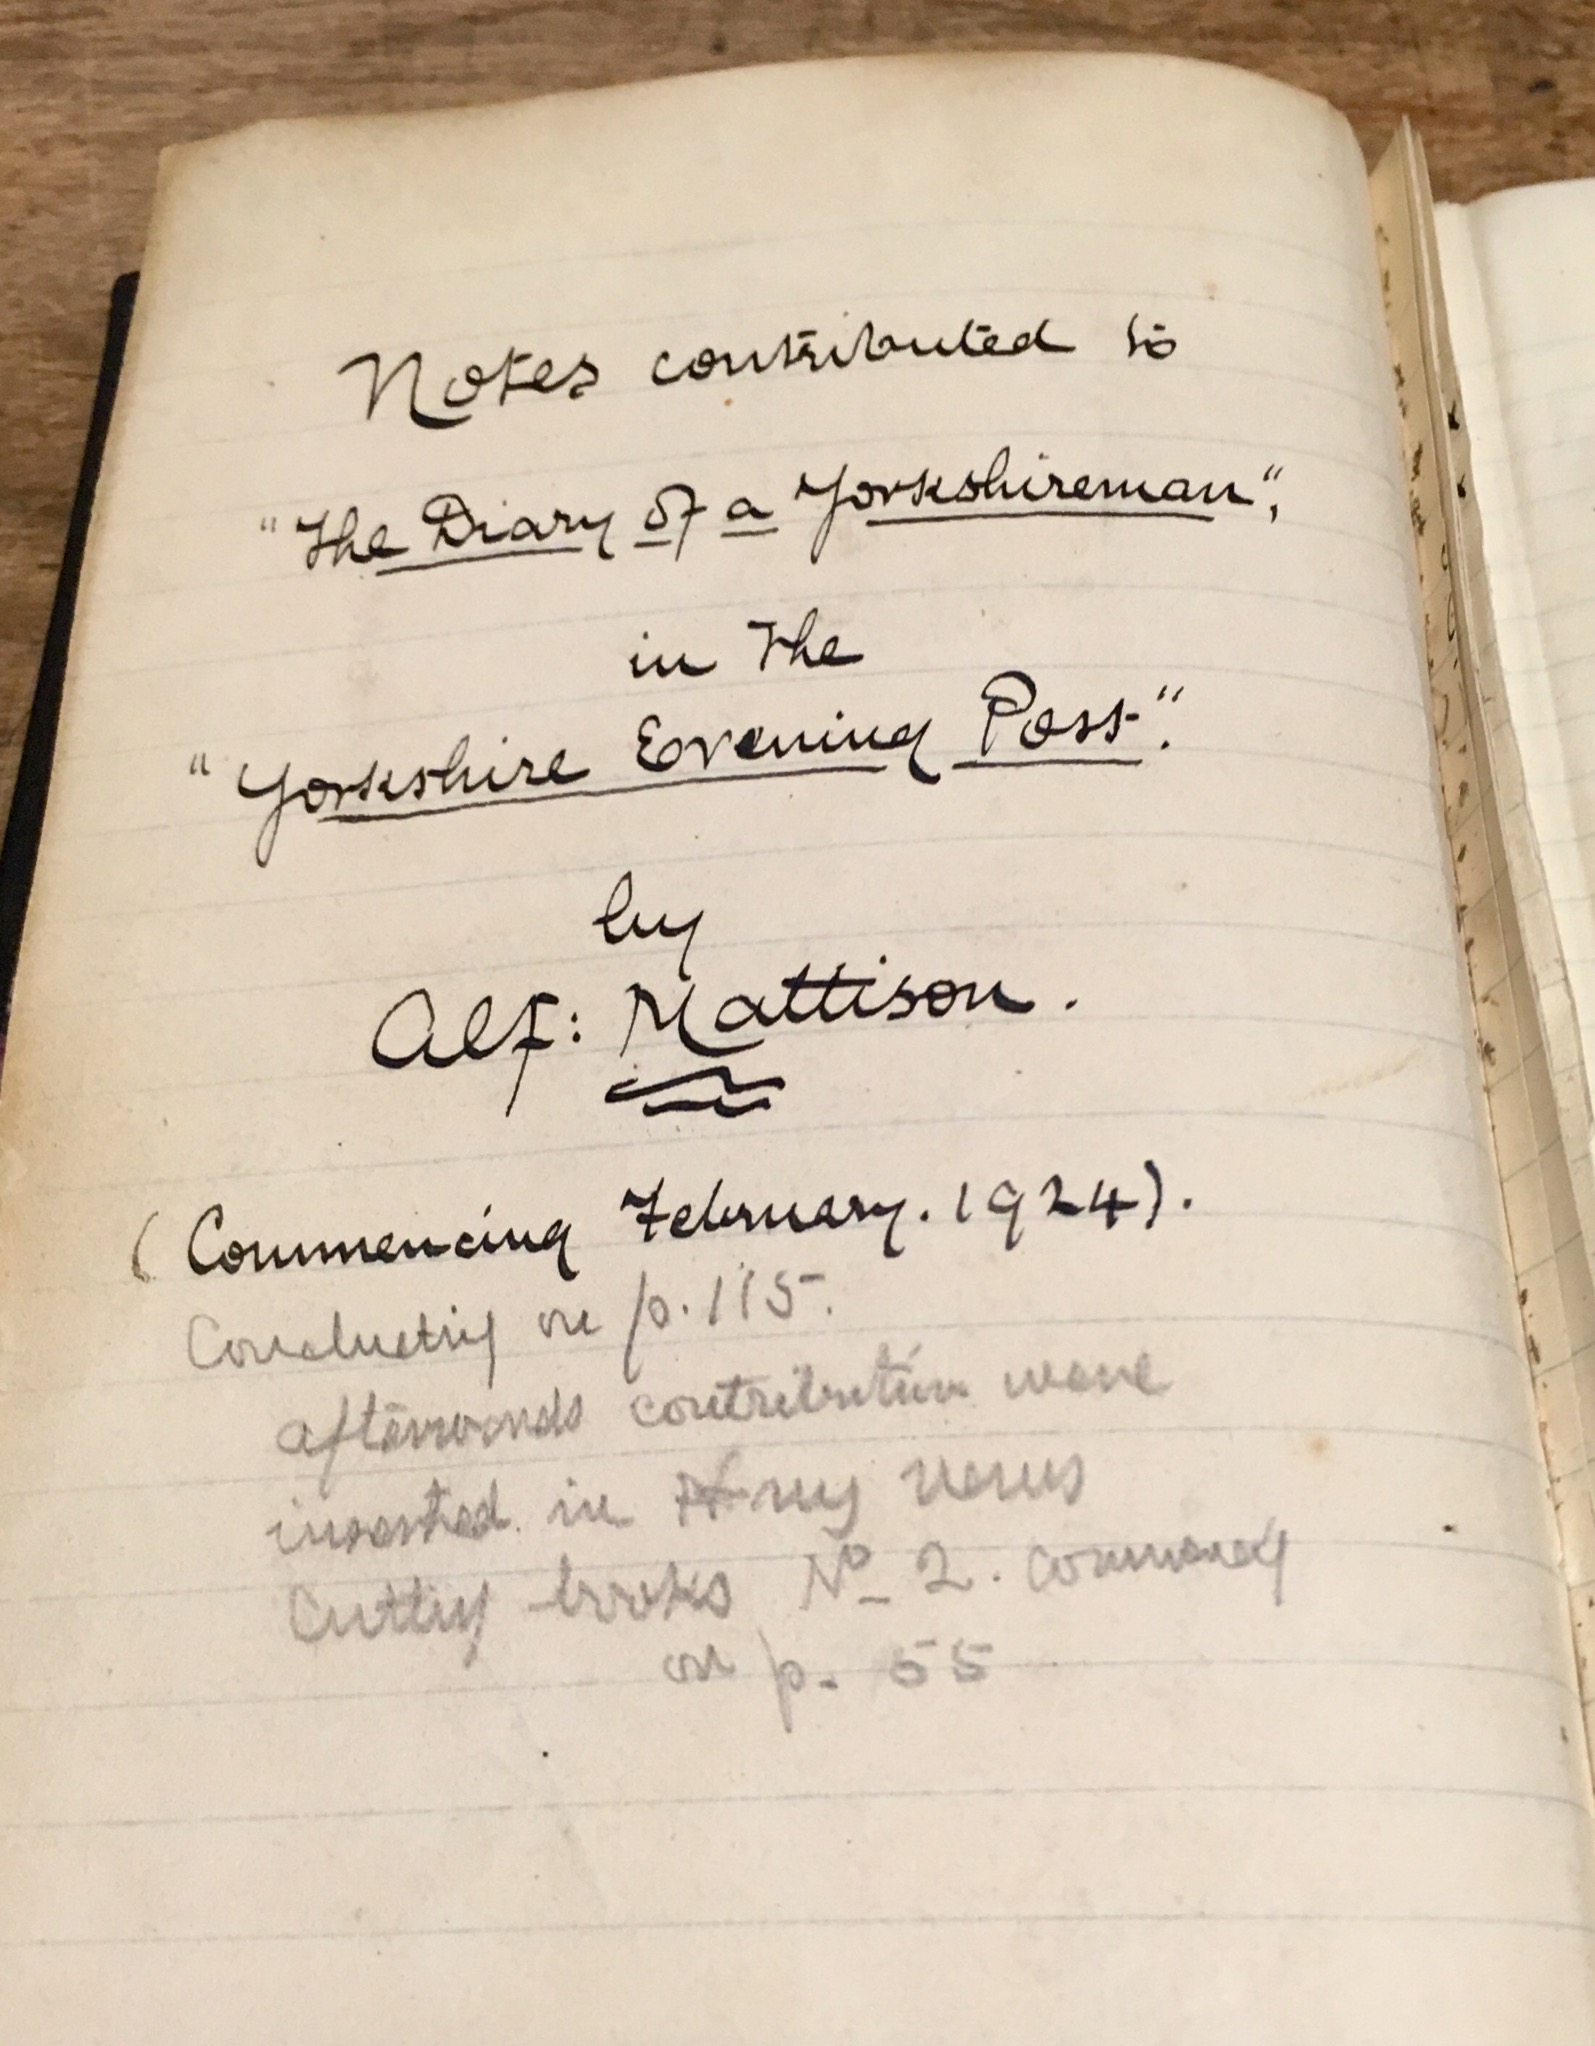 Notes contributed to
"The Diary of a Yorkshireman",
in the
"Yorkshire Evening Post".
by
Alf: Mattison.
(Commencing February. 1924).
Concluding on p. 115.
afterwards contribution were
inserted in my news
Cutting books No 2. commencing
on p. 55